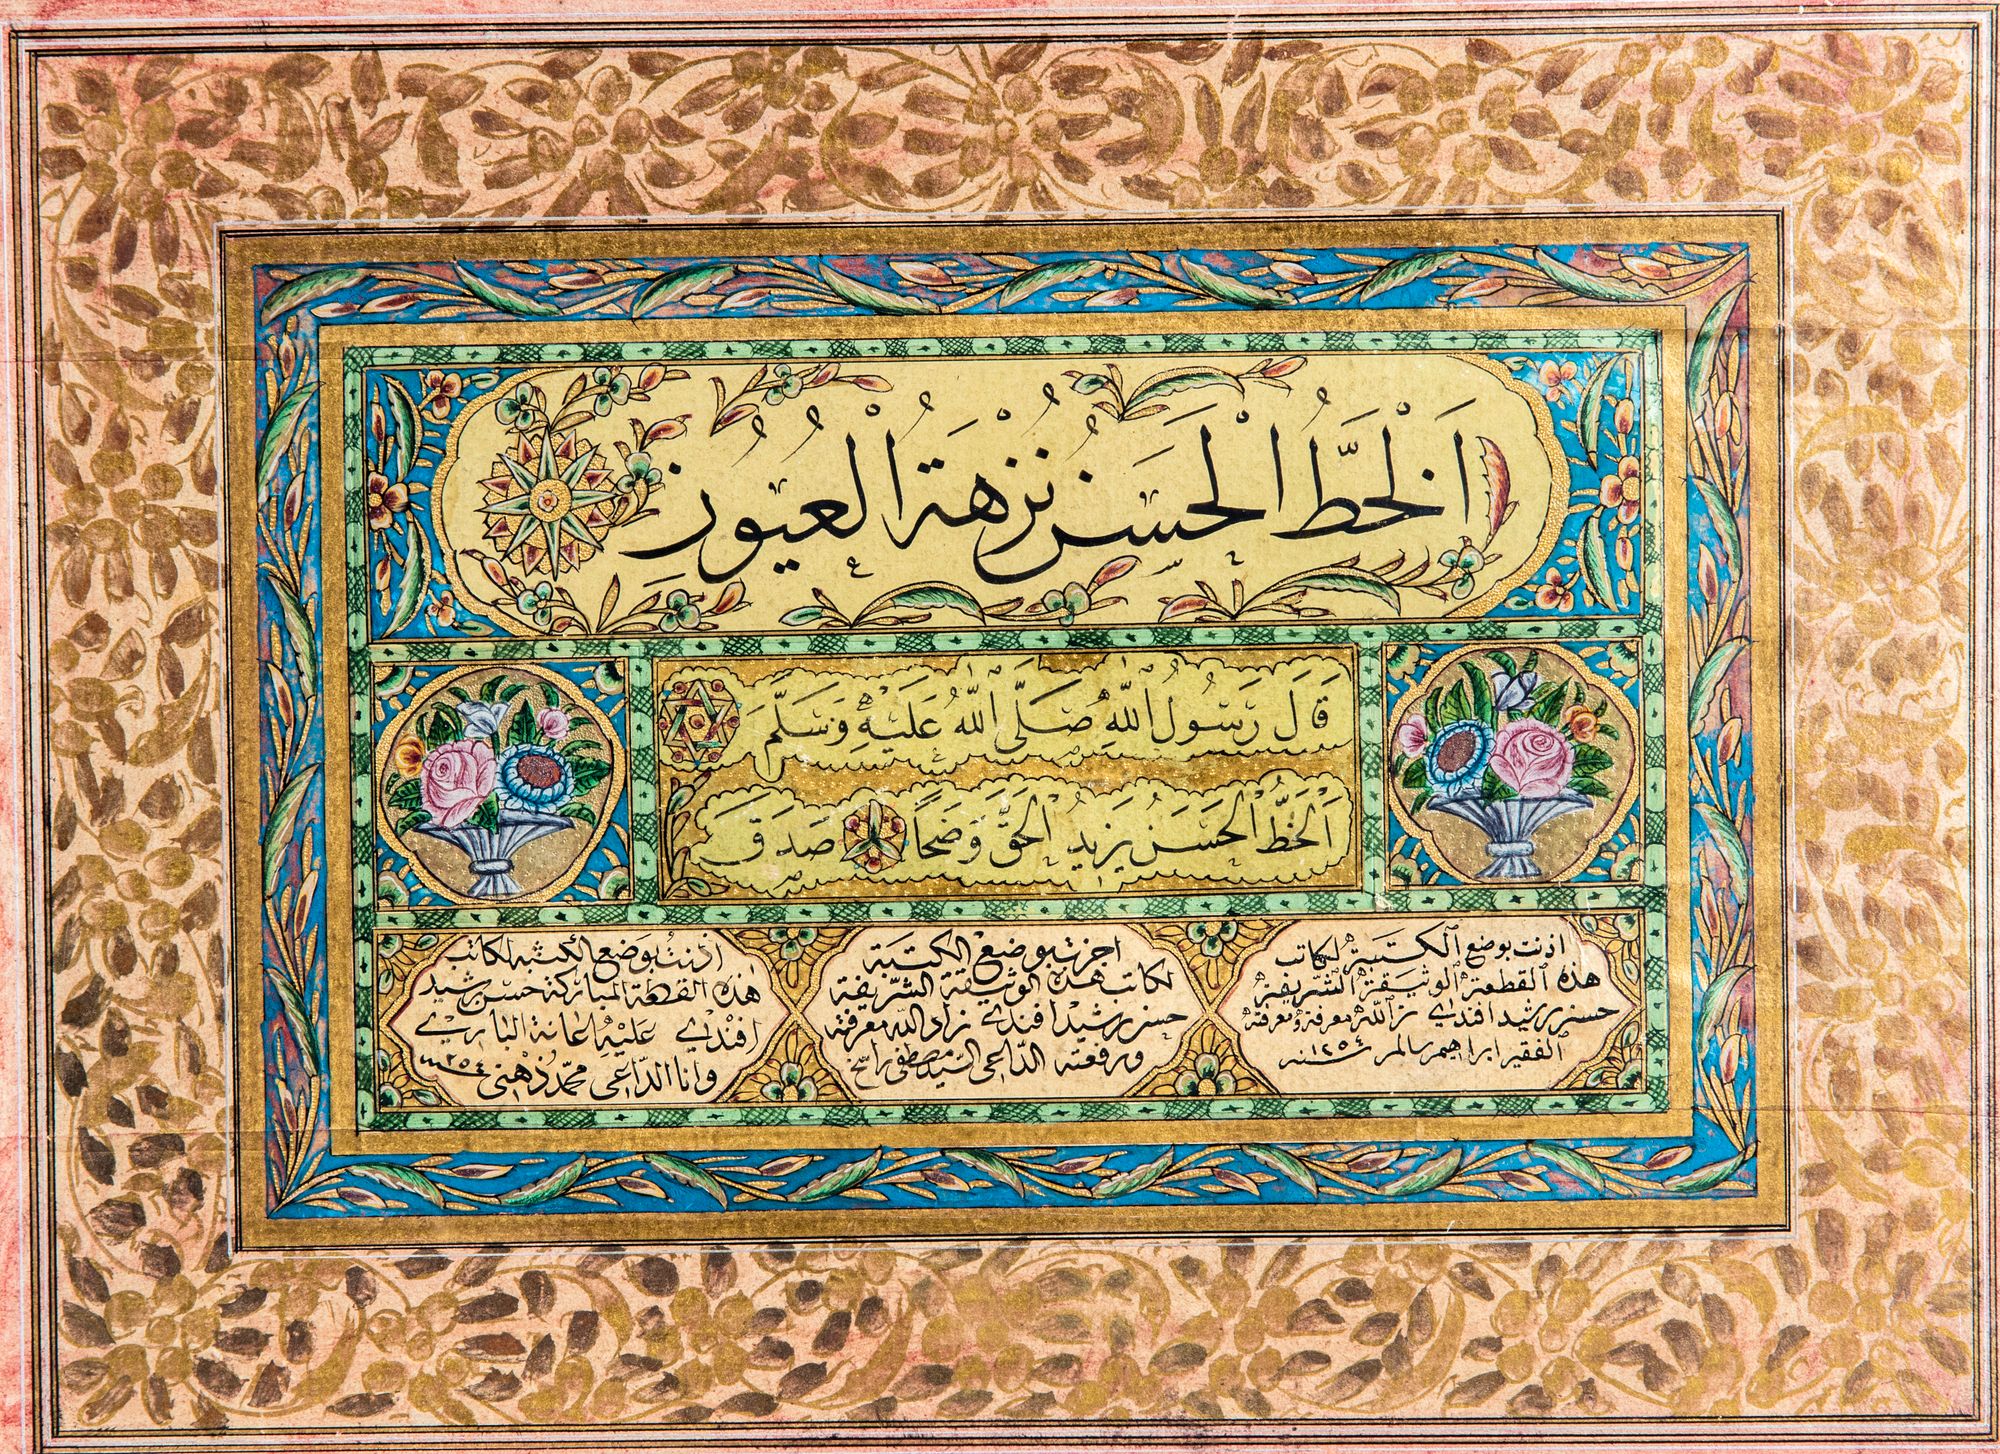 اَلْخَطُّ الْحَسَنُ نُزْهَةُ الْعُيُونِ
قَالَ رَسُولُ اللّٰهِ صَلَّى اللّٰهُ عَلَيْهِ وَسَلَّمَ
اَلْخَطُّ الْحَسَنُ يَزِيدُ الْحَقَّ وَضَحًا صَدَقَ
اذنت بوضع الكتبة لكاتب
هذه القطعة الوثيقة الشريفة
حسن رشيد افندى زاد الله معرفة ومعرفته
الفقير ابراهيم سالم سنه ١٢٥٤
اجزت بوضع الكتبة
لكاتب هذه الوثيقة الشريفة
حسن رشيد افندى زاد الله معرفته
ورفعته الداعى السيد مصطفى راسخ
اذنت بوضع الكتبة لكاتب
هذه القطعة المباركة حسن رشيد
افندى عليه اعانة البارى
وانا الداعى محمد ذهنى سنه ١٢٥٤